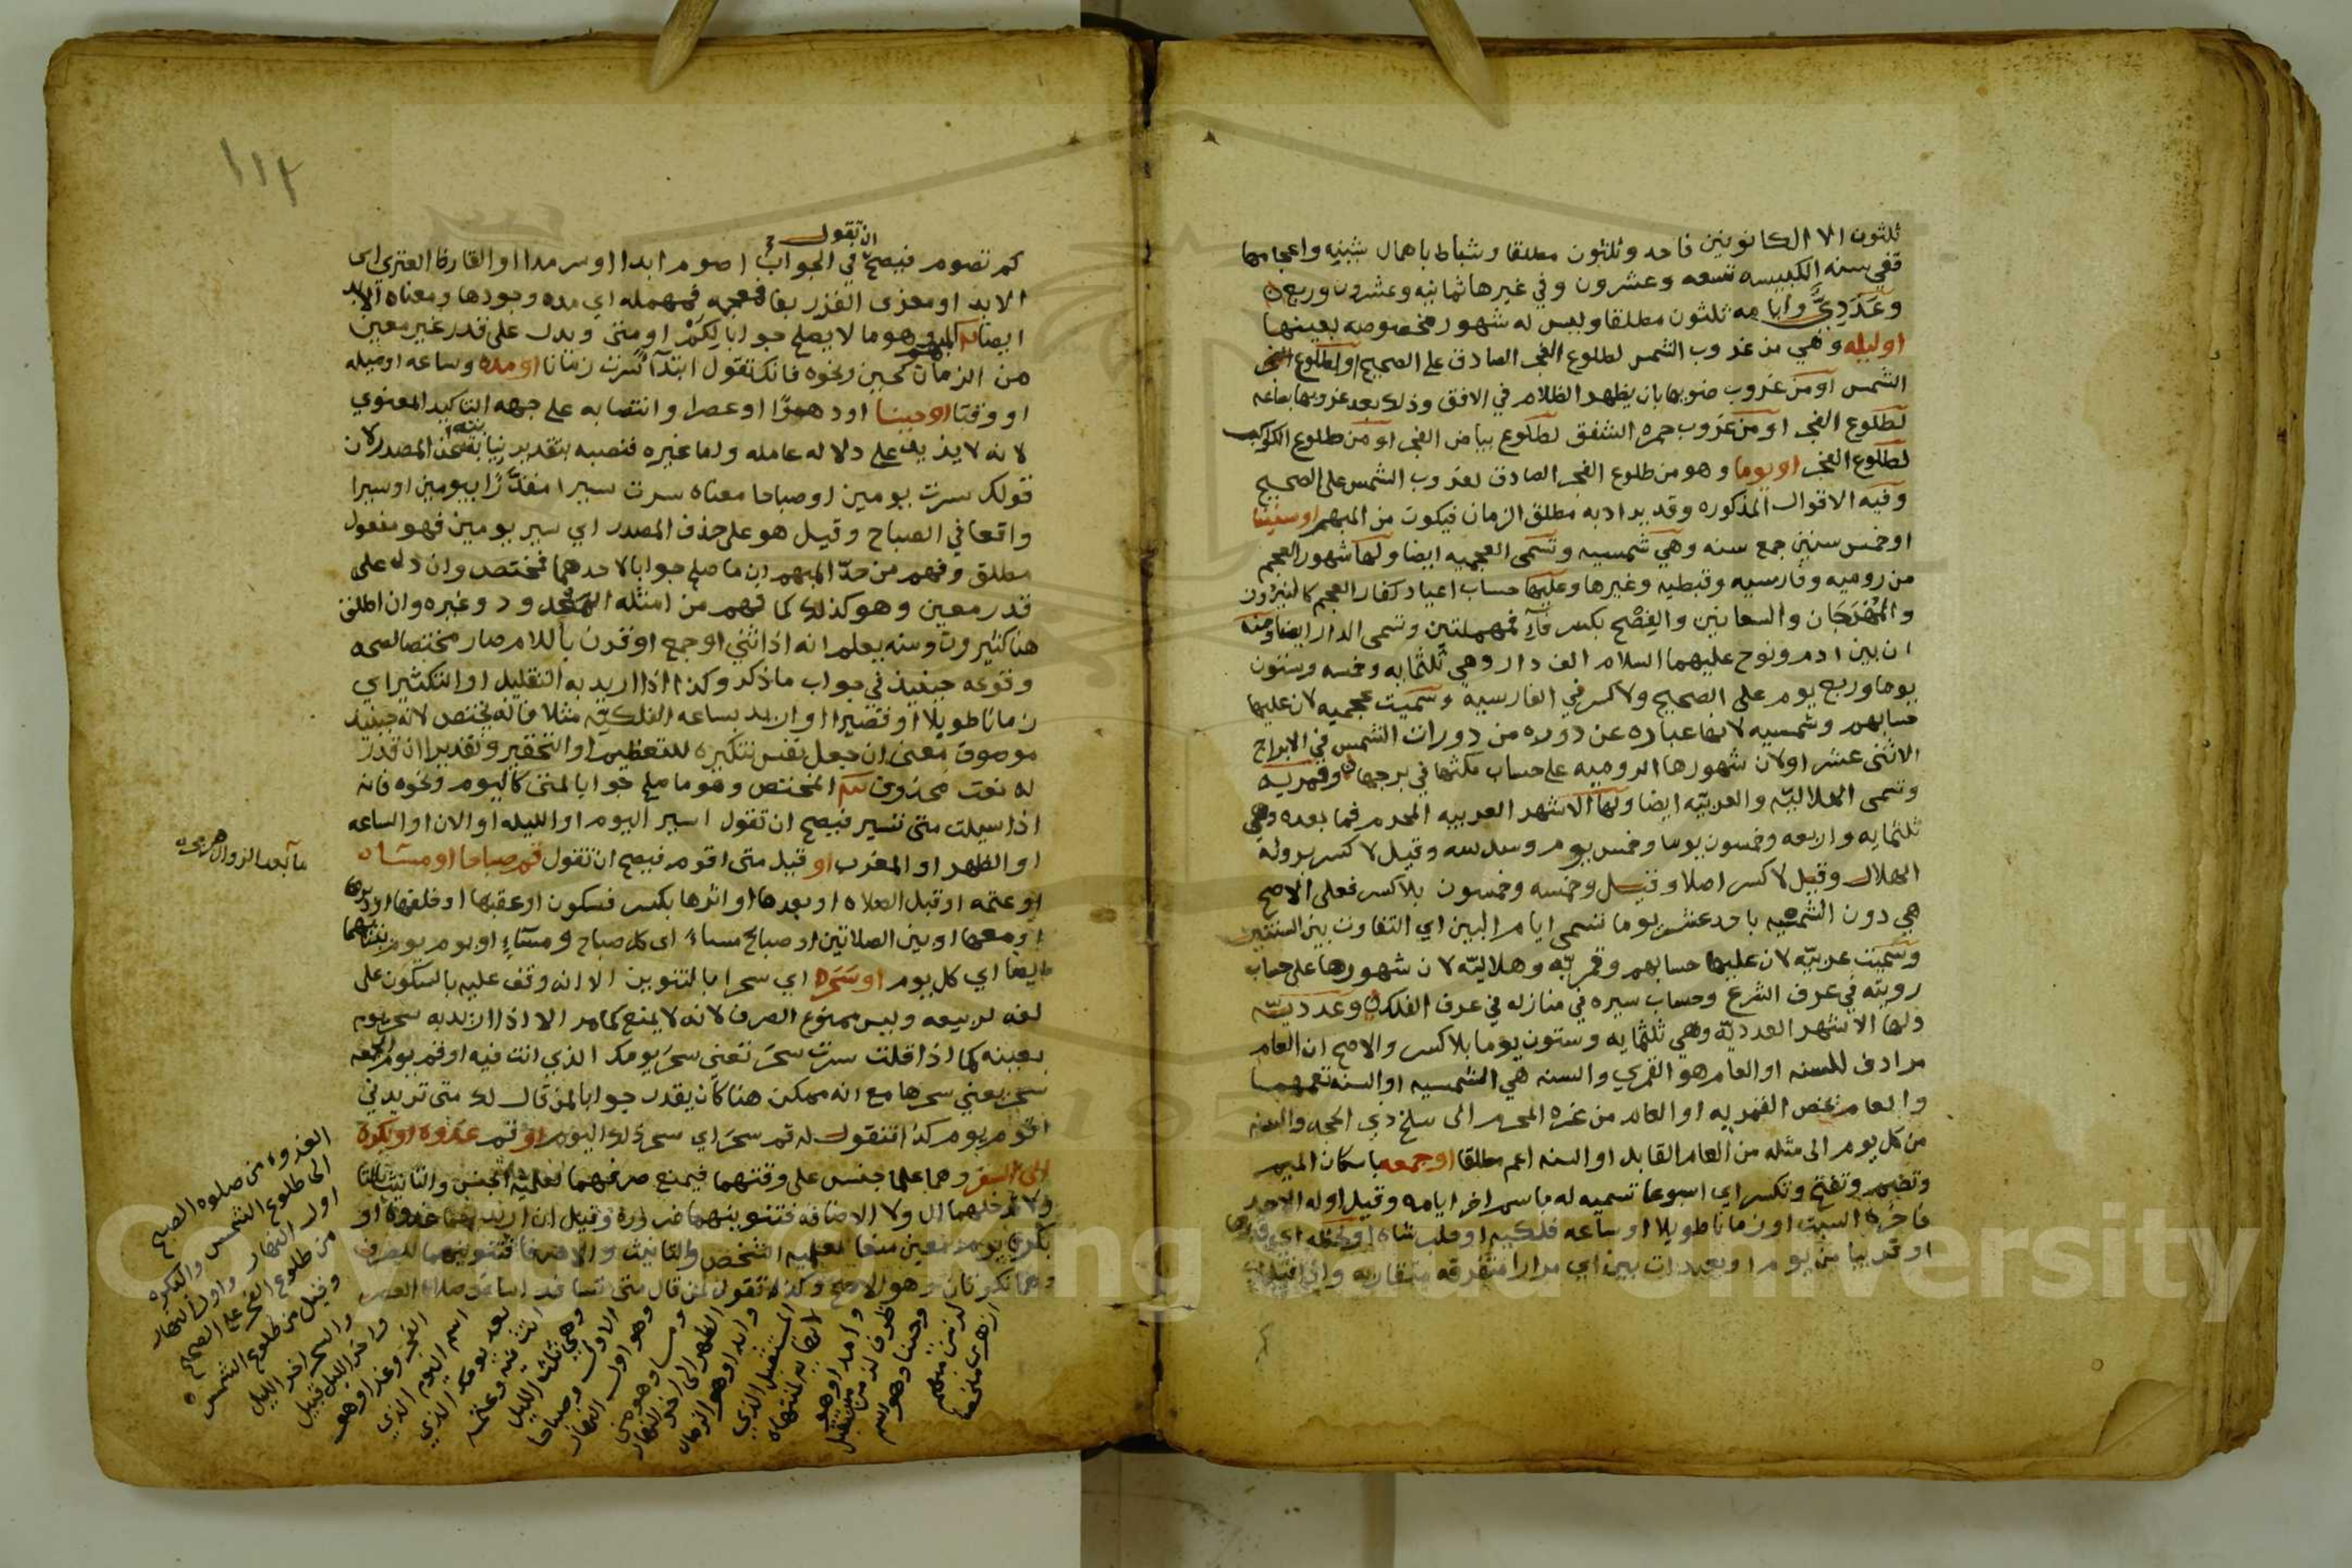 ثلثون الا الكانونين فاحد وثلثون مطلقا وشباط باهمال شينه واعجامها
ففي سنه الكبيسه تسعه وعشرون وفي غيرها ثمانيه وعشرون وربع
وعددي وايامه ثلثون مطلقا وليس له شهور مخصوصه بعينها
اوليله وهي من غروب الشمس لطلوع الفجر الصادق على الصحيح او لطلوع
الشمس او من غروب ضوءها بان يظهر الظلام في الافق وذلك بعد غروبها بساعه
لطلوع الفجر او من غروب حمره الشفق لطلوع بياض الفجر او من طلوع الكوكب
لطلوع الفجر او يوما وهو من طلوع الفجر الصادق لغروب الشمس على الصحيح
وفيه الاقوال المذكوره وقد يراد به مطلق الزمان فيكون من المبهم او سنينا
او خمس سنين جمع سنه وهي شمسيه وتسمى العجميه ايضا ولها شهور العجم
من روميه وفارسيه وقبطيه وغيرها وعليها حساب اعياد كفار العجم كالنيروز
والمهرجان والسعانين والفصح بكسر فاء فمهملتين وتسمى الدار ايضا ومنه
ان بين ادم ونوح عليهما السلام الف دار وهي ثلثمايه وخمسه وستون
يوما وربع يوم على الصحيح ولا كسر في الفارسيه وسميت عجميه لان عليها
حسابهم وشمسيه لانها عباره عن دوره من دورات الشمس في الابراج
الاثنى عشر اولان شهورها الروميه على حساب مكثها في برجها وقمريه
وتسمى الهلاليه والعربيه ايضا ولها الاشهر العربيه المحرم فما بعده وهي
ثلثمايه واربعه وخمسون يوما وخمس يوم وسدسه وقيل لا كسر
الهلال وقيل لا كسر اصلا وقيل وخمسه وخمسون بلا كسر فعلى الاصح
هي دون الشمسيه باحد عشر يوما تسمى ايام البين اي التفاوت بين السنتين
وسميت عربيه لان عليها حسابهم وقمريه وهلاليه لان شهورها على حساب
رويته في عرف الشرع وحساب سيره في منازله في عرف الفلكي وعدديه
ولها الاشهر العدديه وهي ثلثمايه وستون يوما بلا كسر والاصح ان العام
مرادف للسنه او العام هو القمري والسنه هي الشمسيه او السنه تعمهما
والعام يخص القمريه او العام من غره المحرم الى سلخ ذي الحجه والسنه
من كل يوم الى مثله من العام القابل او السنه اعم مطلقا او جمعه باسكان الميم
وتضم وتفتح وتكسر اي اسبوعا تسميه له باسم اخر ايامه وقيل اوله الاحد
فاخره السبت او زمانا طويلا او ساعه فلكيه او
او قريبا من يوم او بعيدات بين اي مرارا متفرقه متقاربه
١١٢
ان تقول
كم تصوم فيصح في الجواب اصوم ابدا او سرمدا او القارظ العنزي اي
الابد او معزى الفزر بفاء فمعجمه فمهمله اي مده وجودها ومعناه الابد
ايضا المبهم وهو ما لا يصلح جوابا لكم او متى ويدل على قدر غير معين
من الزمان كحين ونحوه فانك تقول ابتداء سرت زمانا او مده وساعه
او وقتا او حينا او دهرا او عصرا وانتصابه على جهه التاكيد المعنوي
لانه لا يزيد على دلاله عامله واما غيره فنصبه بتقدير نيابته عن المصدر لان
قولك سرت يومين او صباحا معناه سرت سيرا مقدرا بيومين او سيرا
واقعا في الصباح وقيل هو على حذف المصدر اي سير يومين فهو مفعول
مطلق وفهم من حد المبهم ان ما صلح جوابا لاحدهما فمختص وان دل على
قدر معين وهو كذلك كما فهم من امثله المعدود وغيره وان اطلق
هنا كثيرون ومنه يعلم انه اذا ثني او جمع او قرن باللام صار مختصا لصحه
وقوعه حينئذ في جواب ما ذكر وكذا اذا اريد به التقليل او التكثير اي
زمانا طويلا او قصيرا او اريد بساعه الفلكيه مثلا فانه يختص لانه حينئذ
موصوف معنى ان جعل نفس تنكيره للتعظيم او التحقير وتقديرا ان قدر
له نعت محذوف ثم المختص وهو ما صلح جوابا لمتى كاليوم ونحوه فانه
اذا سيلت متى تسير فيصح ان تقول اسير اليوم او الليله او الان او الساعه
او الظهر او المغرب او قيل متى اقوم فيصح ان تقول قم صباحا او مساء
او عتمه او قبل الصلاه او بعدها او اثرها بكسر فسكون او عقبها او خلفها
او معها او بين الصلاتين او صباح مساء اي كل صباح ومساء او يوم يوم
ايضا اي كل يوم او سحرا اي سحرا بالتنوين الا انه وقف عليه بالسكون على
لغه ربيعه وليس ممنوع الصرف لانه لا يمنع كما مر الا اذا اريد به سحر يوم
بعينه كما اذا قلت سرت سحر تعني سحر يومك الذي انت فيه او قم يوم الجمعه
سحر يعني سحرها مع انه ممكن هنا كان يقدر جوابا لمن قال لك متى تريدني
اقوم يوم كذا فتقول له قم سحر اي سحر ذلك اليوم او قم غدوه او بكره
الى السفر وهما علما جنس على وقتهما فيمنع صرفهما لعلميه الجنس والتانيث بالتا
ولا تدخلهما ال ولا الاضافه فتنوينهما ضروره وقيل ان اريد بهما غدوه او
بكره يوم معين منعا لعلميه الشخص والتانيث والا صرفا فتنوينهما للصرف
وهما نكرتان وهو الاصح وكذا تقول لمن قال متى تسافر
ما بعد الزوال
الغدوه من صلوه الصبح
الى طلوع الشمس والبكره
اول النهار واول النهار
من طلوع الفجر على الصحيح
وقيل من طلوع الشمس
والسحر اخر الليل
واخر الليل قبيل
الفجر وغدا وهو
اسم اليوم الذي
بعد يومك الذي
انت فيه وعتمه
وهي ثلث الليل
الاول وصباحا
وهو اول النهار
ومسا وهو من
الظهر الى اخر النهار
وابدا وهو الزمان
المستقبل الذي
وامدا وهو
ظرف لزمن مستقبل
وحينا وهو اسم
لزمن مبهم